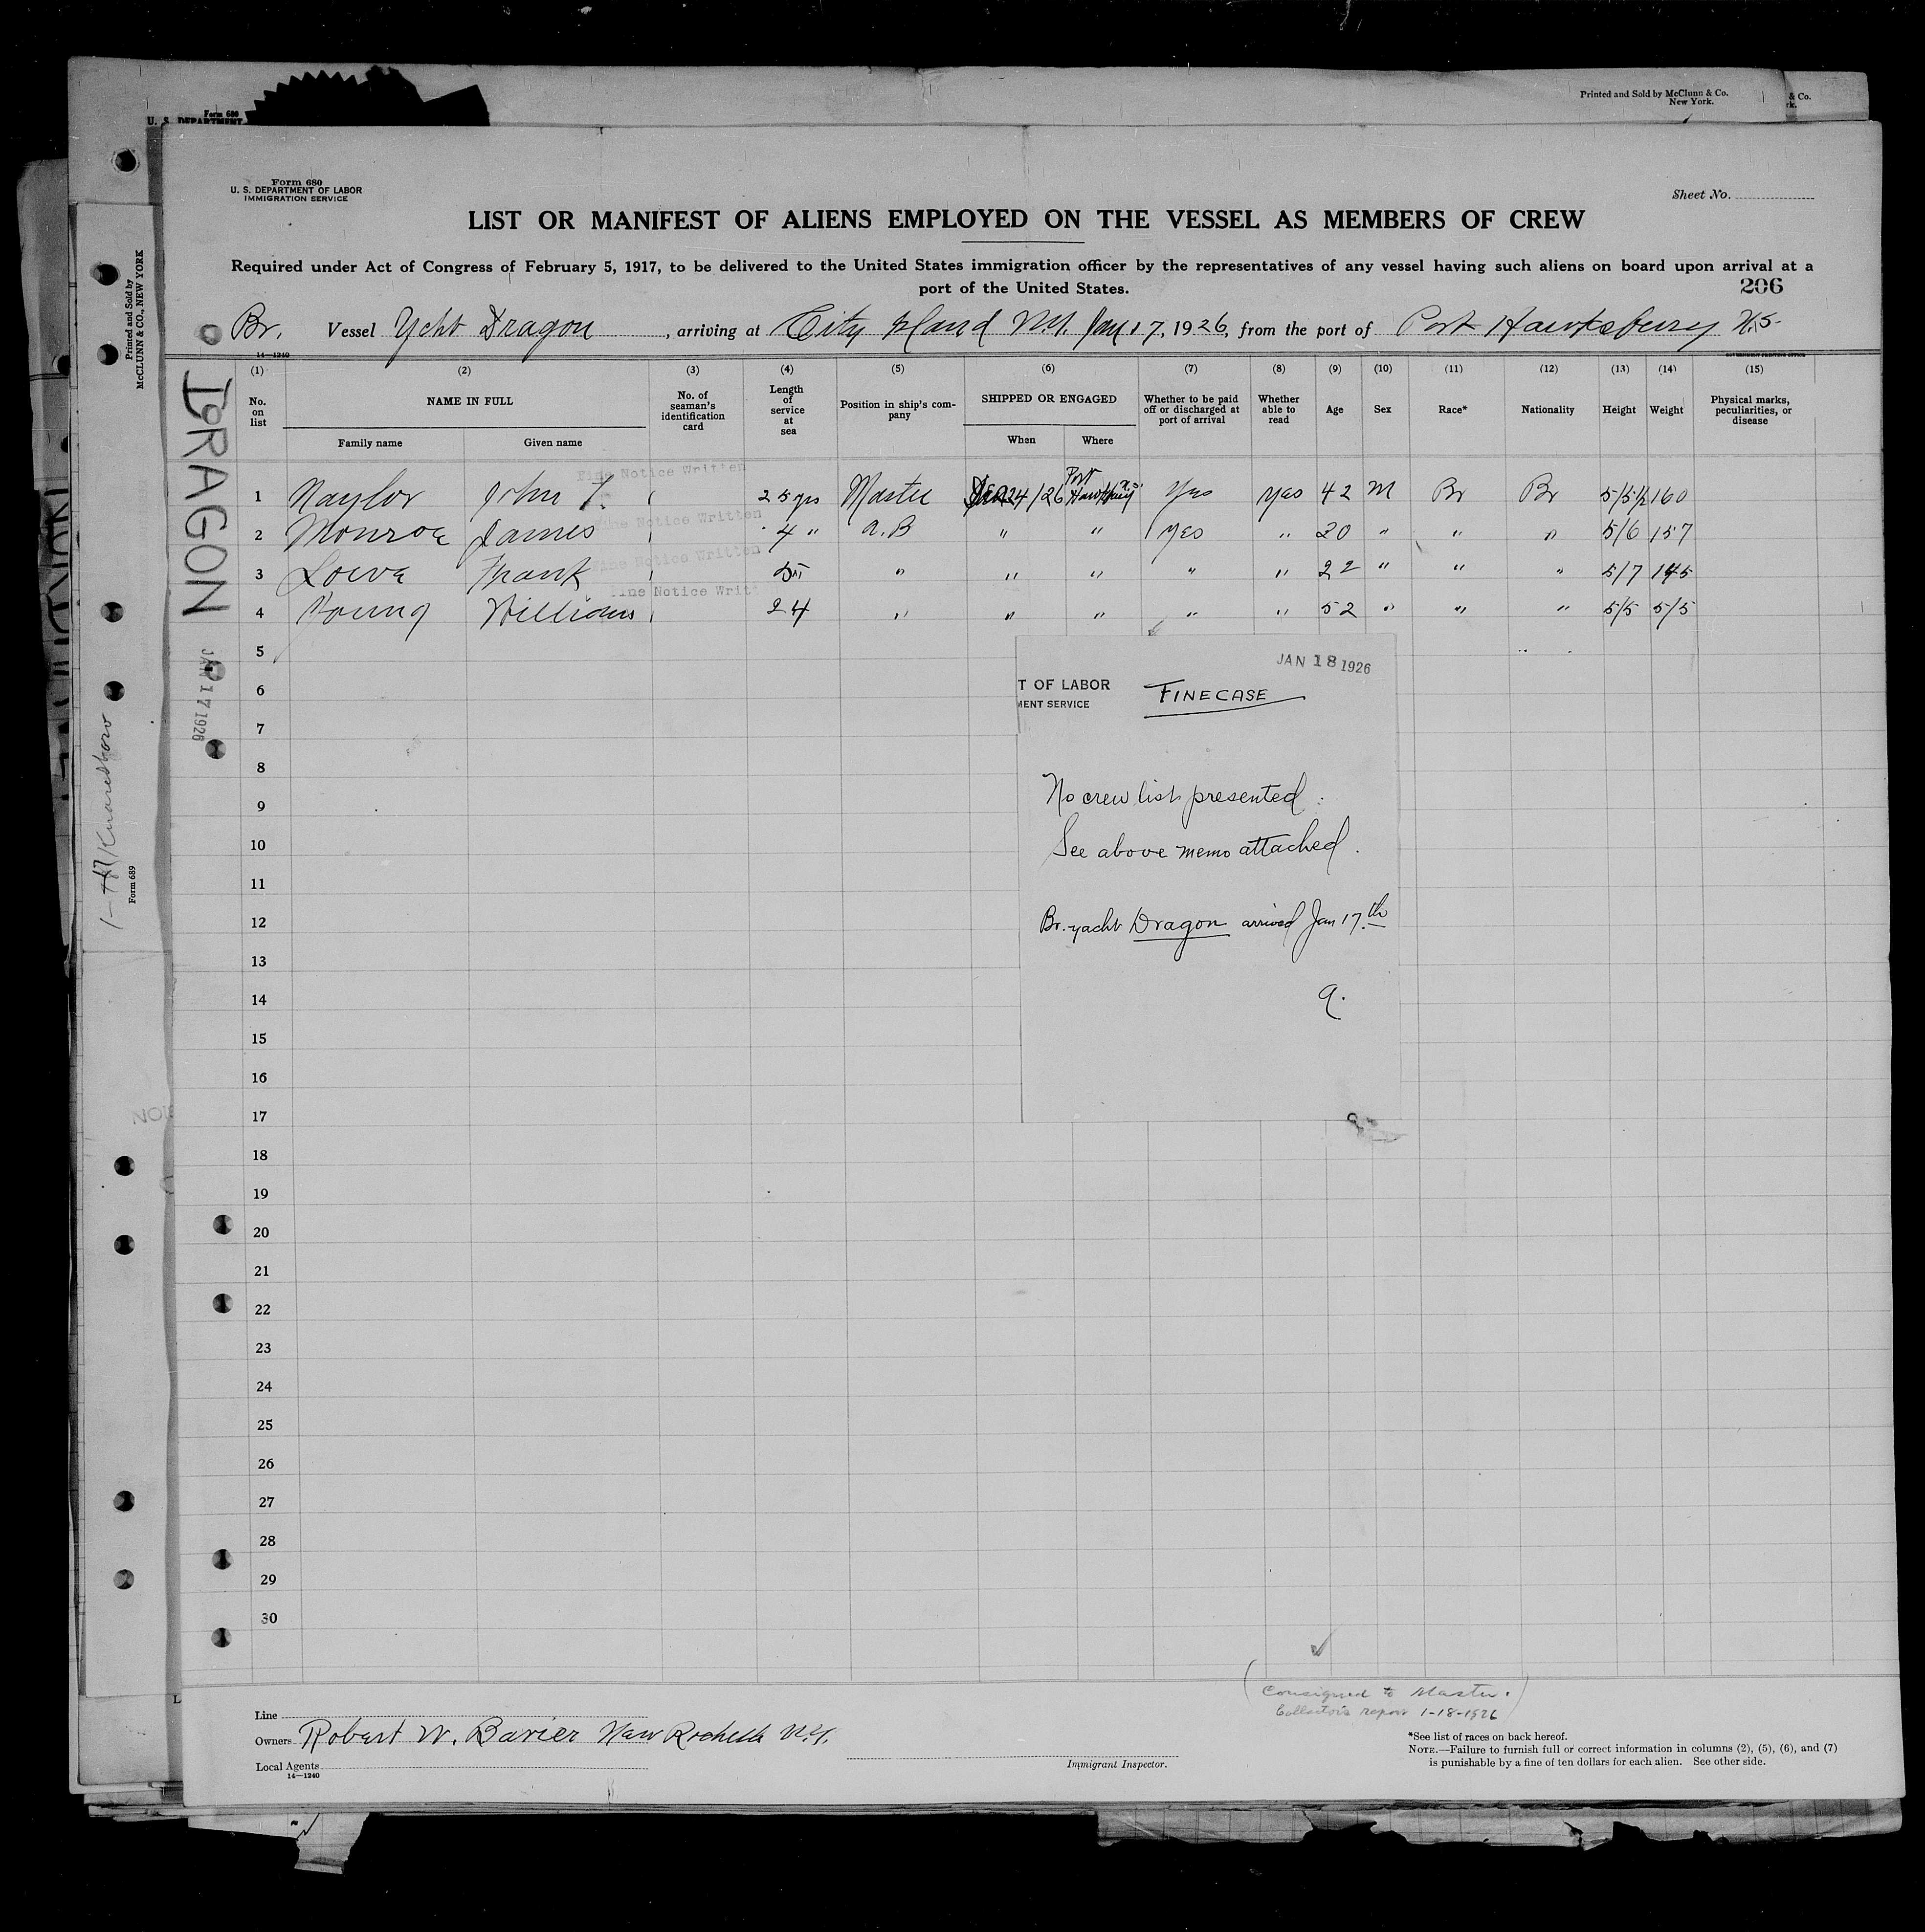 Printed and Sold by McClunn & Co.
New York.
& Co.
Form 680
U. S. DEPARTMENT
Form 680
U. S. DEPARTMENT OF LABOR
IMMIGRATION SERVICE
Sheet No.
LIST OR MANIFEST OF ALIENS EMPLOYED ON THE VESSEL AS MEMBERS OF CREW
Required under Act of Congress of February 5, 1917, to be delivered to the United States immigration officer by the representatives of any vessel having such aliens on board upon arrival at a
port of the United States.
206
Br. Vessel Ycht Dragon, arriving at City Island N.Y. Jan 17, 1926, from the port of Port Hawksbury N.S.
14—1240
GOVERNMENT PRINTING OFFICE
(1) (2) (3) (4) (5) (6) (7) (8) (9) (10) (11) (12) (13) (14) (15)
No. on list NAME IN FULL Family name Given name No. of seaman's identification card Length of service at sea Position in ship's company SHIPPED OR ENGAGED When Where Whether to be paid off or discharged at port of arrival Whether able to read Age Sex Race* Nationality Height Weight Physical marks, peculiarities, or disease
Fine Notice Written
1 Naylor John T. 25 yrs Master 24/26 Port Yes yes 42 M Br Br 5/5½ 160
Fine Notice Written
2 Monroe James 4 " A.B " " yes " 20 " " " 5/6 157
Fine Notice Written
3 Loeve Frank " " " " " 22 " " " 5/7 145
Fine Notice Writ
4 Young William 24 " " " " " 52 " " " 5/5 5/5
5
6
7
8
9
10
11
12
13
14
15
16
17
18
19
20
21
22
23
24
25
26
27
28
29
30
JAN 18 1926
T OF LABOR
MENT SERVICE
FINE CASE
No crew list presented
See above memo attached.
Br. yacht Dragon arrived Jan 17th
DRAGON
JAN 17 1926
Printed and Sold by
McCLUNN & CO., NEW YORK
Knaresboro
Form 689
(Consigned to Master.)
Collector's report 1-18-1926
Line
Owners Robert W. Bavier New Rochelle N.Y.
Local Agents
14—1240
Immigrant Inspector.
*See list of races on back hereof.
NOTE.—Failure to furnish full or correct information in columns (2), (5), (6), and (7)
is punishable by a fine of ten dollars for each alien. See other side.